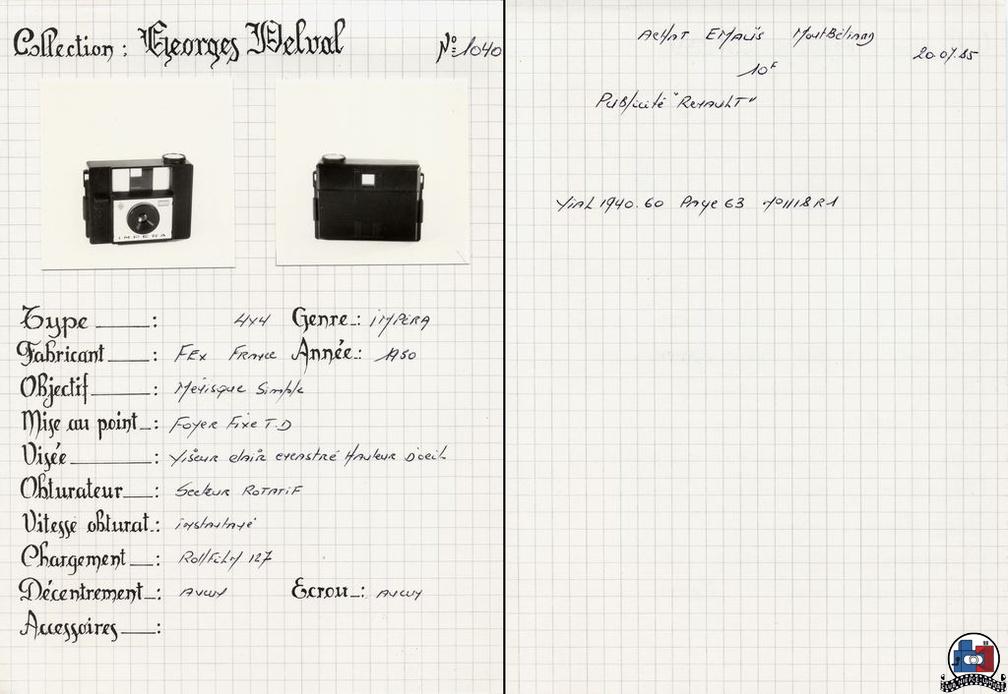 Collection : Georges Delval N° 1040
IMPERA
Type : 4x4 Genre : iMPERA
Fabricant : FEX France Année : 1950
Objectif : Ménisque Simple
Mise au point : Foyer Fixe T.D
Visée : Viseur clair Hauteur D'oeil
Obturateur : Secteur RoTATiF
Vitesse obturat. : instantané
Chargement : RollFilm 127
Décentrement : Aucun Ecrou : Aucun
Accessoires :
Achat EMAÜS MontBéliard
20.07.85
10F
Publicité "RENAULT"
Vial 1940.60 Page 63 n° 1118 R1